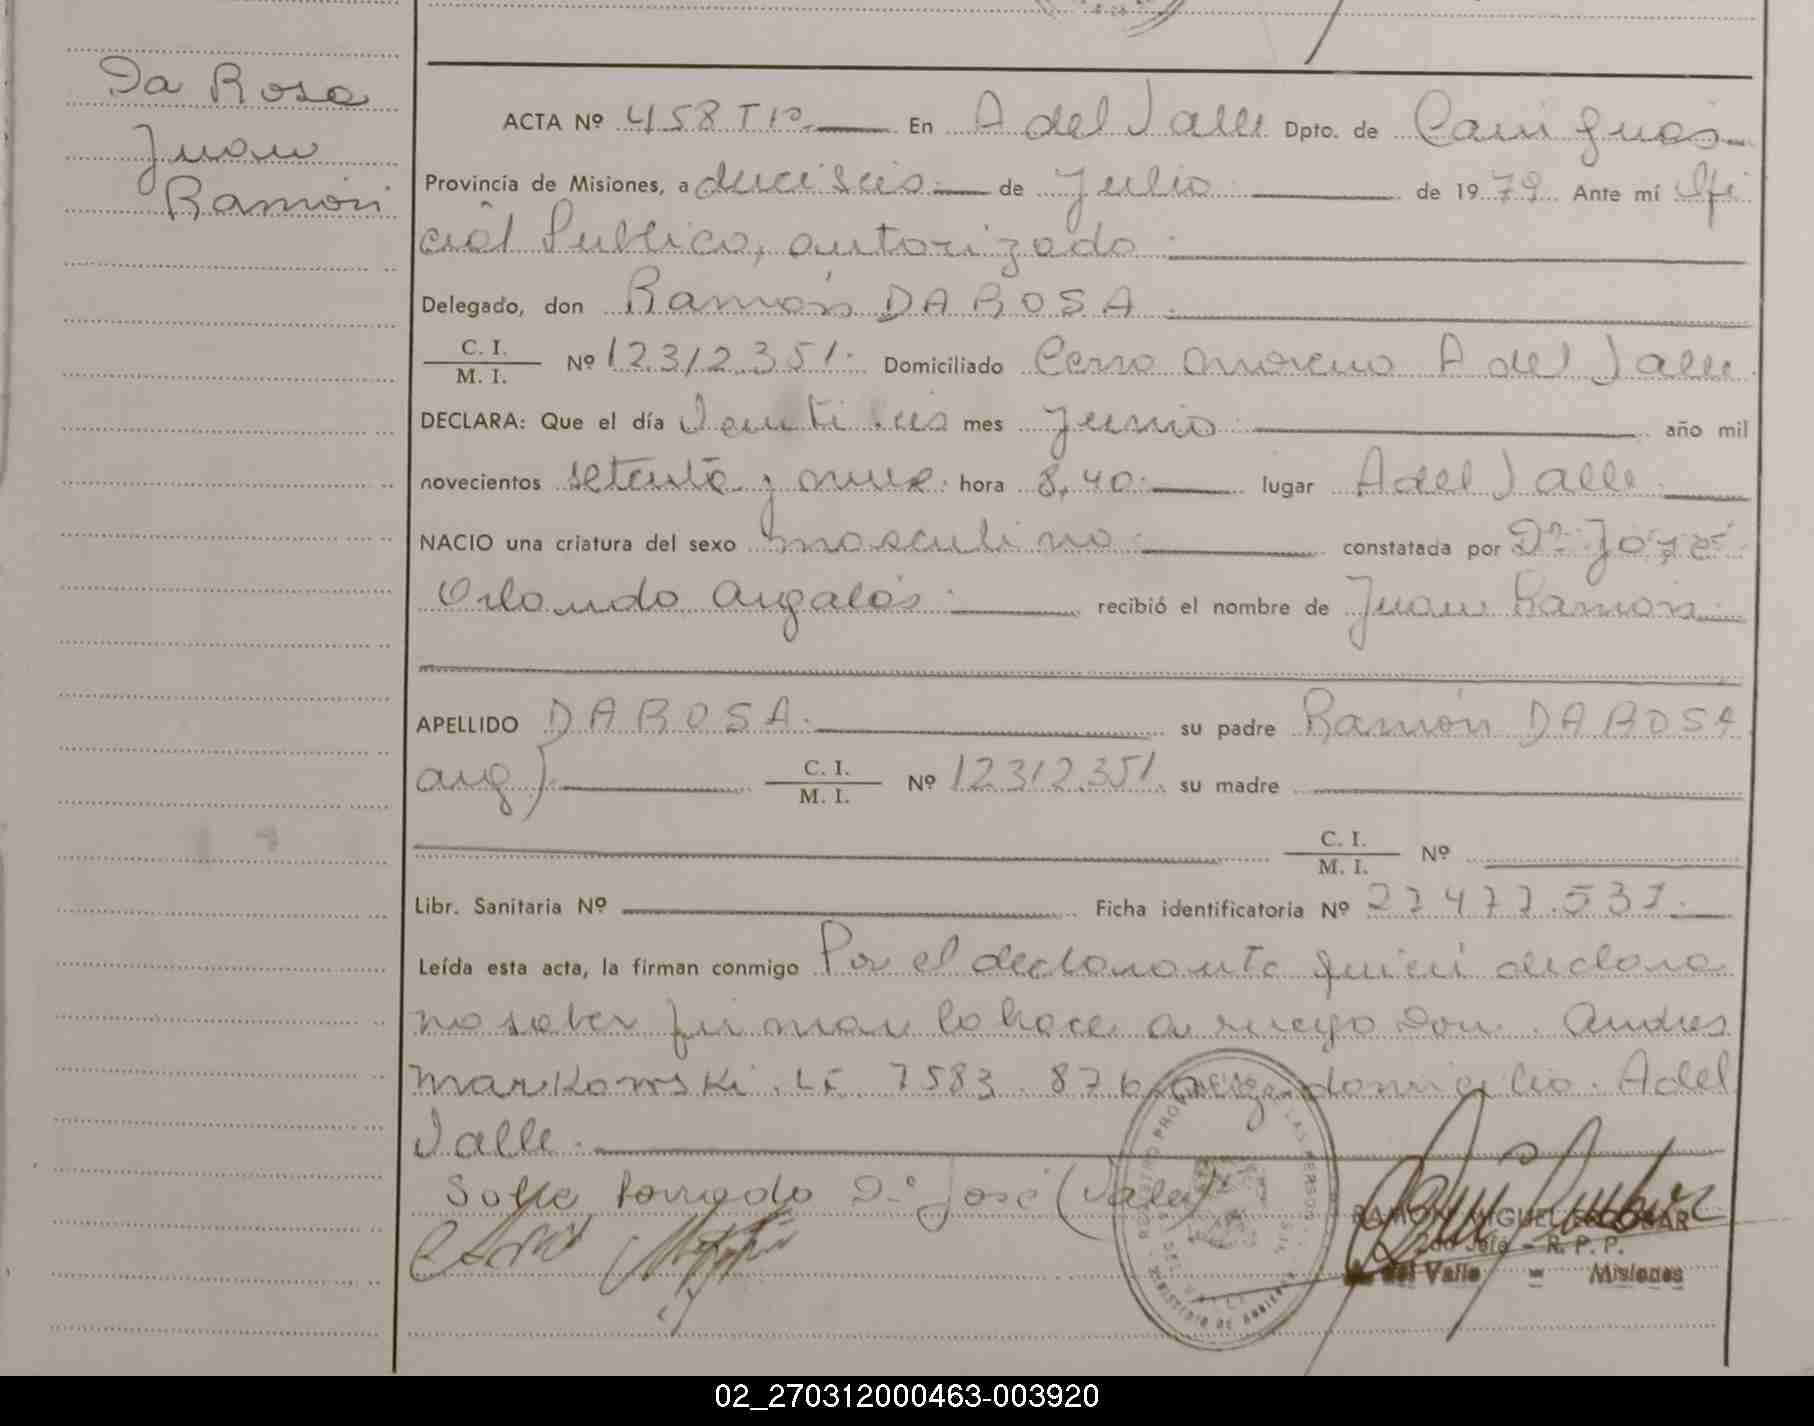 Da Rosa
Juan
Ramón
ACTA Nº 458 Tº En A del Valle Dpto. de Cainguas
Provincia de Misiones, a dieciseis de Julio de 1979. Ante mí Ofi
cial Publico, autorizado
Delegado, don Ramón DA ROSA
C. I.
M. I. Nº 12312.351. Domiciliado Cerro Moreno A del Valle
DECLARA: Que el día Ventiseis mes Junio año mil
novecientos setenta y nueve hora 8,40. lugar A del Valle
NACIO una criatura del sexo masculino constatada por Dr. José
Orlando recibió el nombre de Juan Ramón
APELLIDO DA ROSA. su padre Ramón DA ROSA
arg) C. I.
M. I. Nº 12312.351. su madre
C. I.
M. I. Nº
Libr. Sanitaria Nº Ficha identificatoria Nº 27477.531.
Leída esta acta, la firman conmigo Por el declarante quien declara
no saber firmar lo hace a ruego Don. Andres
Markowski. LE 7583.876 domicilio. A del
Valle.
Sobre borrado Dr. José (Vale)
REGISTRO PROVINCIAL DE LAS PERSONAS
RAMON MIGUEL ESCOBAR
2do Jefe - R. P. P.
A. del Valle = Misiones
02_270312000463-003920